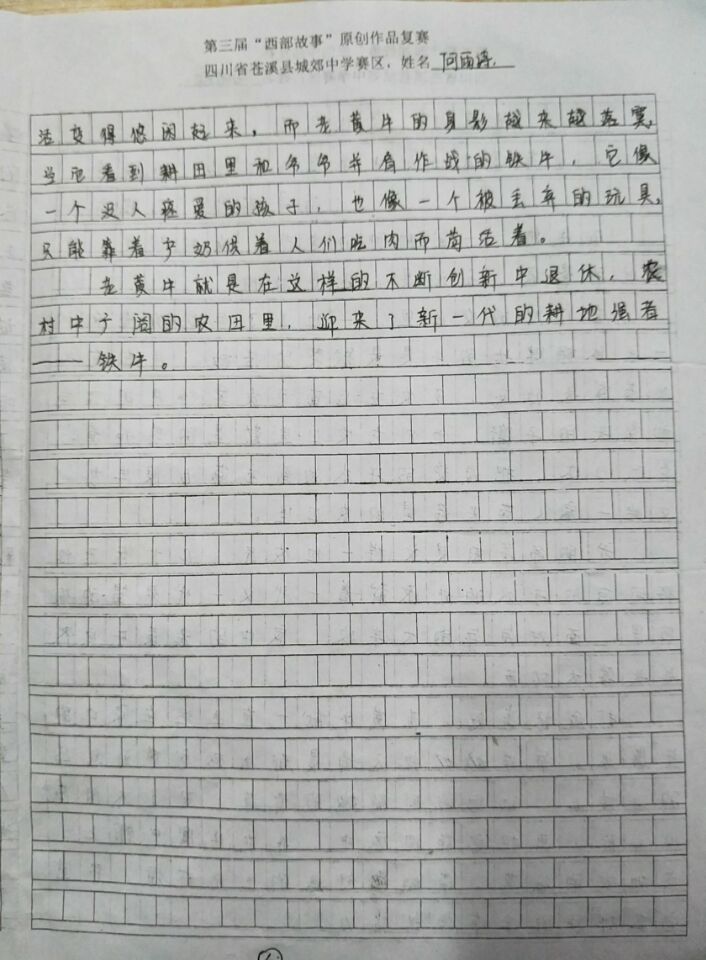 第三届“西部故事”原创作品复赛
四川省苍溪县城郊中学赛区，姓名 何雨涛
活变得悠闲起来，而老黄牛的身影越来越落寞，
当它看到耕田里和爷爷并肩作战的铁牛，它像
一个没人疼爱的孩子，也像一个被丢弃的玩具，
只能靠着产奶供着人们吃肉而苟活着。
老黄牛就是在这样的不断创新中退休，农
村中广阔的农田里，迎来了新一代的耕地强者
——铁牛。